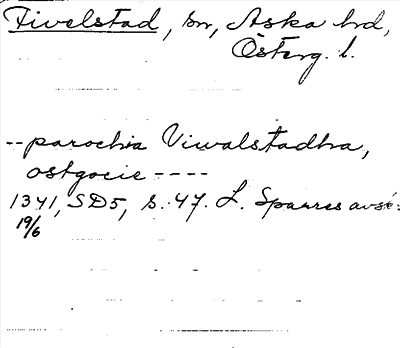 Fivelstad, sn, Aska hd,
Österg. l.
-- parochia Viwalstadha,
ostgocie ----
1341, SD5, s. 47. L. Sparres avskr.
19/6